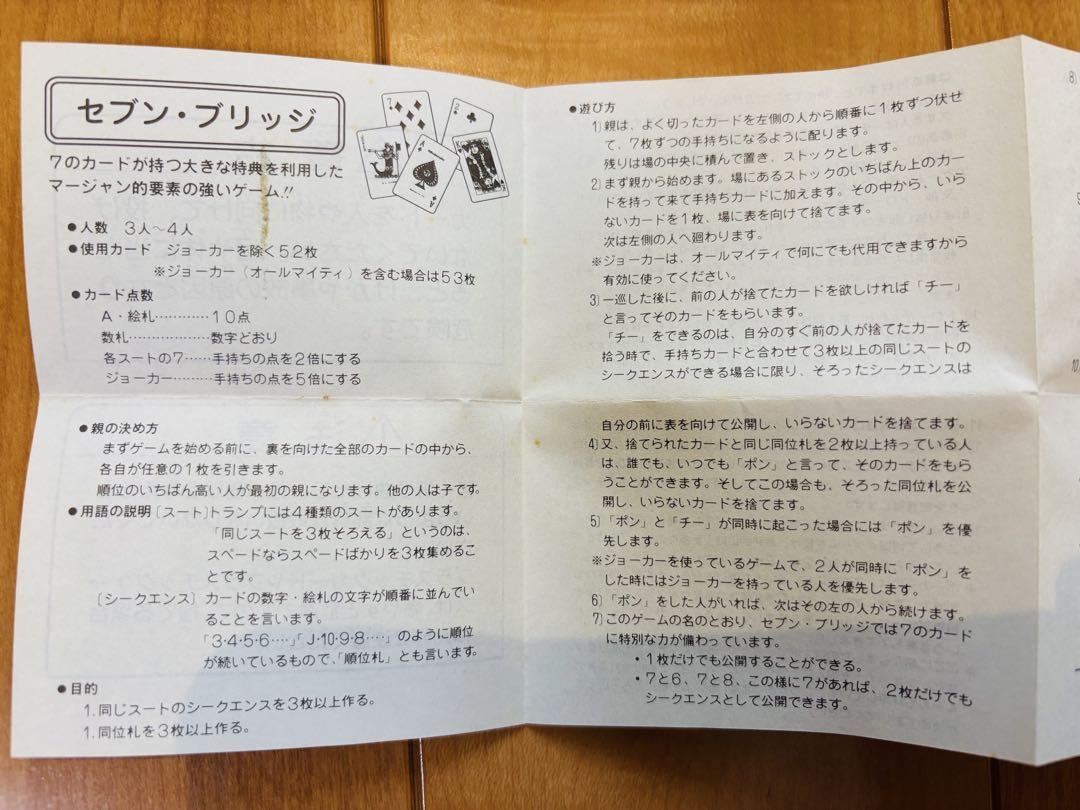 セブン・ブリッジ
7のカードが持つ大きな特典を利用した
マージャン的要素の強いゲーム!!
●人数 3人〜4人
●使用カード ジョーカーを除く52枚
※ジョーカー(オールマイティ)を含む場合は53枚
●カード点数
A・絵札…………10点
数札………………数字どおり
各スートの7……手持ちの点を2倍にする
ジョーカー………手持ちの点を5倍にする
●親の決め方
まずゲームを始める前に、裏を向けた全部のカードの中から、
各自が任意の1枚を引きます。
順位のいちばん高い人が最初の親になります。他の人は子です。
●用語の説明〔スート〕トランプには4種類のスートがあります。
「同じスートを3枚そろえる」というのは、
スペードならスペードばかりを3枚集めるこ
とです。
〔シークエンス〕カードの数字・絵札の文字が順番に並んでい
ることを言います。
「3・4・5・6‥‥」「J・10・9・8‥‥」のように順位
が続いているもので、「順位札」とも言います。
●目的
1.同じスートのシークエンスを3枚以上作る。
1.同位札を3枚以上作る。
●遊び方
1)親は、よく切ったカードを左側の人から順番に1枚ずつ伏せ
て、7枚ずつの手持ちになるように配ります。
残りは場の中央に積んで置き、ストックとします。
2)まず親から始めます。場にあるストックのいちばん上のカー
ドを持って来て手持ちカードに加えます。その中から、いら
ないカードを1枚、場に表を向けて捨てます。
次は左側の人へ廻わります。
※ジョーカーは、オールマイティで何にでも代用できますから
有効に使ってください。
3)一巡した後に、前の人が捨てたカードを欲しければ「チー」
と言ってそのカードをもらいます。
「チー」をできるのは、自分のすぐ前の人が捨てたカードを
拾う時で、手持ちカードと合わせて3枚以上の同じスートの
シークエンスができる場合に限り、そろったシークエンスは
自分の前に表を向けて公開し、いらないカードを捨てます。
4)又、捨てられたカードと同じ同位札を2枚以上持っている人
は、誰でも、いつでも「ポン」と言って、そのカードをもら
うことができます。そしてこの場合も、そろった同位札を公
開し、いらないカードを捨てます。
5)「ポン」と「チー」が同時に起こった場合には「ポン」を優
先します。
※ジョーカーを使っているゲームで、2人が同時に「ポン」を
した時にはジョーカーを持っている人を優先します。
6)「ポン」をした人がいれば、次はその左の人から続けます。
7)このゲームの名のとおり、セブン・ブリッジでは7のカード
に特別な力が備わっています。
・1枚だけでも公開することができる。
・7と6、7と8、この様に7があれば、2枚だけでも
シークエンスとして公開できます。
8)